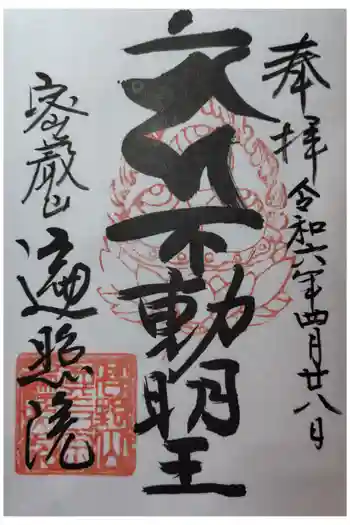 奉拝
令和六年四月廿八日
不動明王
密蔵山
遍照院